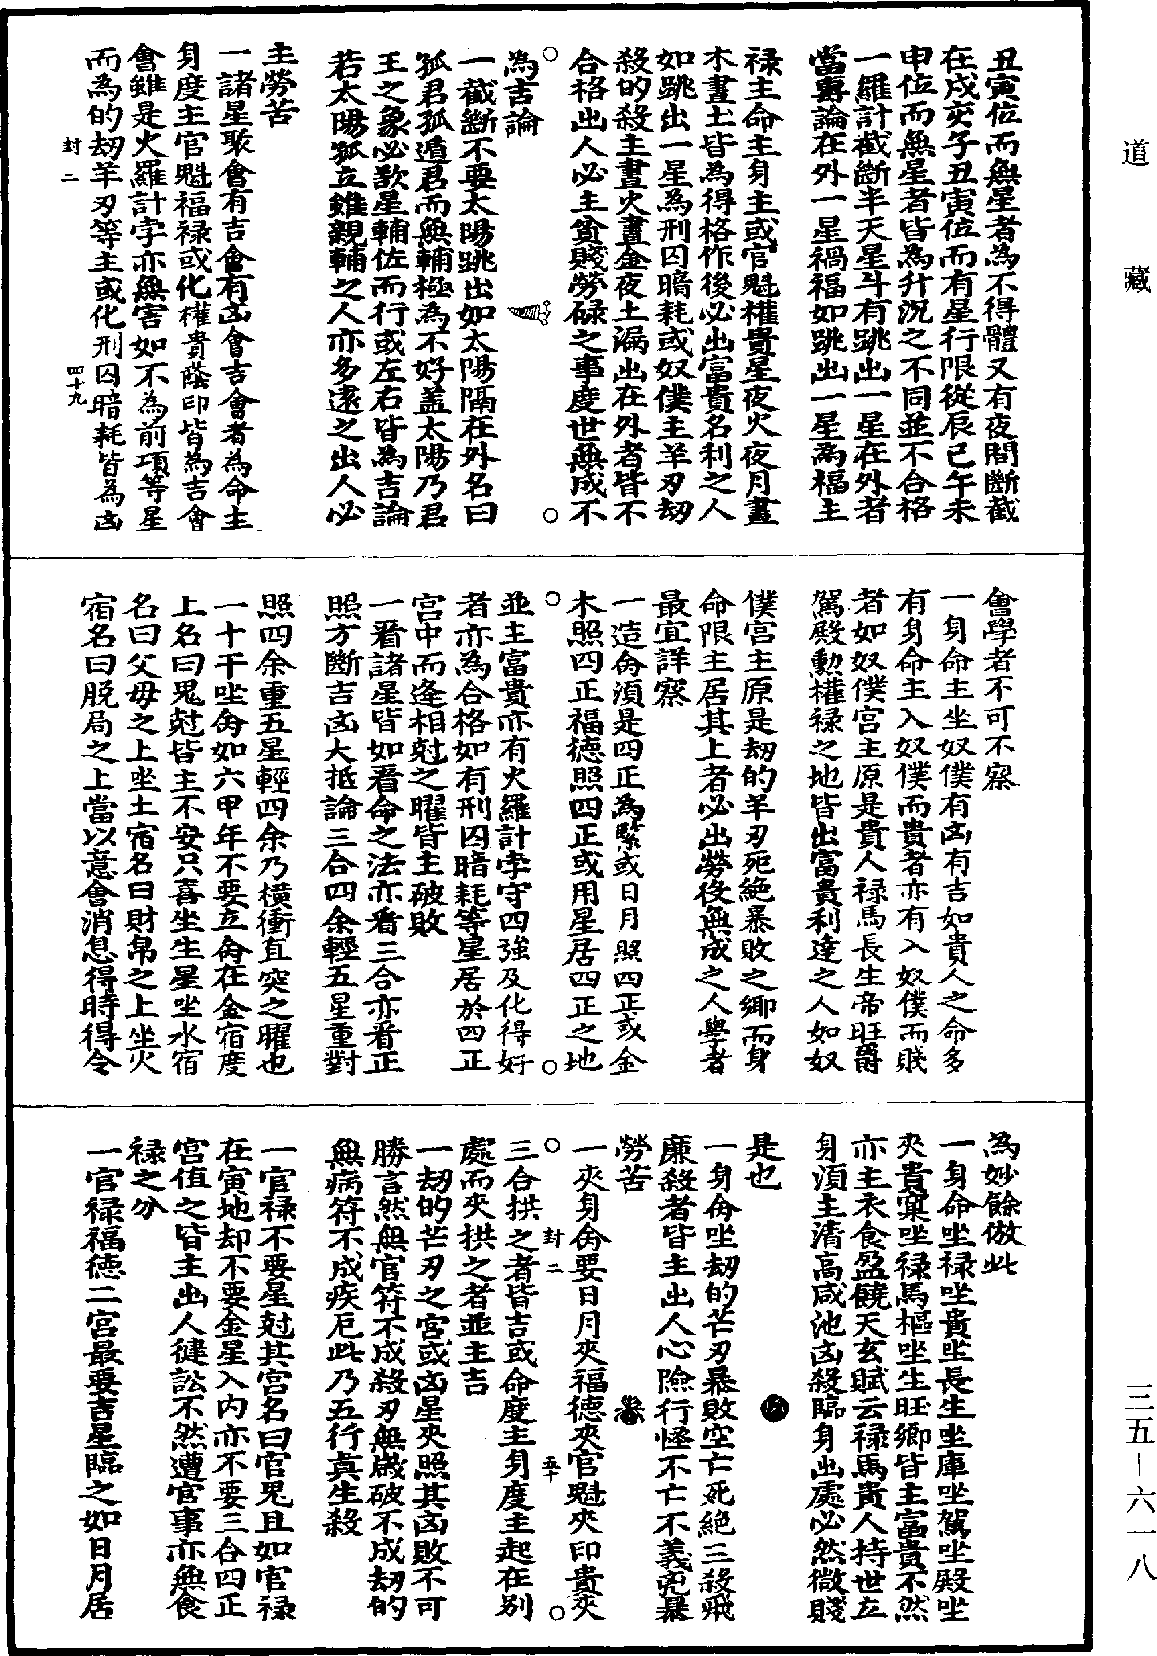 道藏
丑寅位而無星者為不得體又有夜間斷截
在戍亥子丑寅位而有星行限從辰巳午未
申位而無星者皆為升沉之不同並不合格
一羅計截斷半天星斗有跳出一星在外者
當專論在外一星禍福如跳出一星為福主
祿主命主身主或官魁權貴星夜火夜月晝
木晝土皆為得格作後必出富貴名利之人
如跳出一星為刑囚暗耗或奴僕主羊刃劫
殺的殺主晝火晝金夜土漏出在外者皆不
合格出人必主貧賤勞碌之事度世無成不
為吉論
一截斷不要太陽跳出如太陽隔在外名曰
孤君孤遁君而無輔極為不好盖太陽乃君
王之象必散星輔佐而行或左右皆為吉論
若太陽孤立雖親輔之人亦多遠之出人必
主勞苦
一諸星聚會有吉會有凶會吉會者為命主
身度主官魁福祿或化權貴蔭印皆為吉會
會雖是火羅計孛亦無害如不為前項等星
而為的劫羊刃等主或化刑囚暗耗皆為凶
封二
四十九
會學者不可不察
一身命主坐奴僕有凶有吉如貴人之命多
有身命主入奴僕而貴者亦有入奴僕而賤
者如奴僕宮主原是貴人祿馬長生帝旺爵
駕殿勳權祿之地皆出富貴利達之人如奴
僕宮主原是劫的羊刃死絕暴敗之鄉而身
命限主居其上者必出勞役無成之人學者
最宜詳察
一造命須是四正為緊或日月照四正或金
木照四正福德照四正或用星居四正之地
並主富貴亦有火羅計孛守四強及化得好
者亦為合格如有刑囚暗耗等星居於四正
宮中而逢相尅之曜皆主破敗
一看諸星皆如看命之法亦看三合亦看正
照方斷吉凶大抵論三合四余輕五星重對
照四余重五星輕四余乃橫衝直突之曜也
一十干坐命如六甲年不要立命在金宿度
上名曰鬼尅皆主不安只喜坐生星坐水宿
名曰父母之上坐土宿名曰財帛之上坐火
宿名曰脫局之上當以意會消息得時得令
為妙餘倣此
一身命坐祿坐貴坐長生坐庫坐駕坐殿坐
夾貴窠坐祿馬樞坐生旺鄉皆主富貴不然
亦主衣食盈饒天玄賦云祿馬貴人持世立
身須主清高咸池凶殺臨身出處必然微賤
是也
一身命坐劫的芒刃暴敗空亡死絕三殺飛
廉殺者皆主出人心險行怪不亡不義兇暴
勞苦
一夾身命要日月夾福德夾官魁夾印貴夾
封二
五十
三合拱之者皆吉或命度主身度主起在別
處而夾拱之者並主吉
一劫的芒刃之宮或凶星夾照其凶敗不可
勝言然無官符不成殺刃無歲破不成劫的
無病符不成疾厄此乃五行真生殺
一官祿不要星尅其宮名曰官鬼且如官祿
在寅地却不要金星入內亦不要三合四正
宮值之皆主出人健訟不然遭官事亦無食
祿之分
一官祿福德二宮最要吉星臨之如日月居
三五－六一八